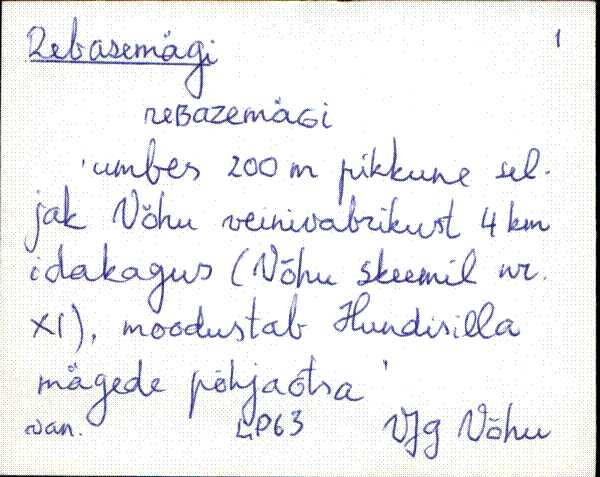 Rebasemägi 1
reBazemäGi
'umbes 200 m pikkune sel-
jak Võhu veinivabrikust 4 km
idakagus (Võhu skeemil nr.
XI), moodustab Hundisilla
mägede põhjaotsa'
van. LP63 VJg Võhu